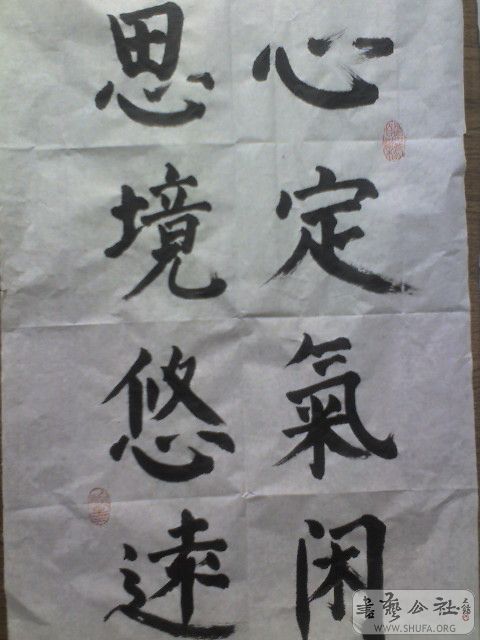 心定氣闲
思境悠遠
書藝公社
WWW.SHUFA.ORG